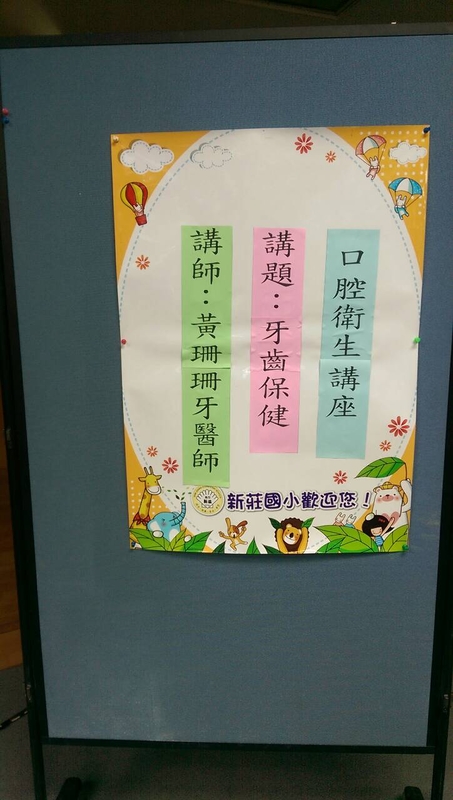 口腔衛生講座
講題：牙齒保健
講師：黃珊珊牙醫師
新莊國小歡迎您！